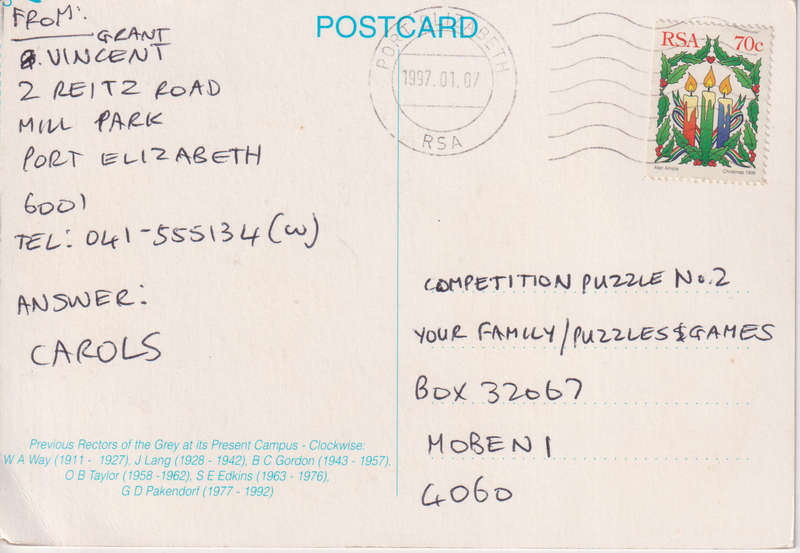 POSTCARD
FROM:
GRANT
VINCENT
2 REITZ ROAD
MILL PARK
PORT ELIZABETH
6001
TEL: 041-555134(W)
ANSWER:
CAROLS
Previous Rectors of the Grey at its Present Campus - Clockwise:
W A Way (1911 - 1927), J Lang (1928 - 1942), B C Gordon (1943 - 1957),
O B Taylor (1958 -1962), S E Edkins (1963 - 1976),
G D Pakendorf (1977 - 1992)
PORT ELIZABETH
1997.01.07
RSA
RSA 70c
Christmas 1996
COMPETITION PUZZLE No.2
YOUR FAMILY/PUZZLES & GAMES
BOX 32067
MOBENI
4060